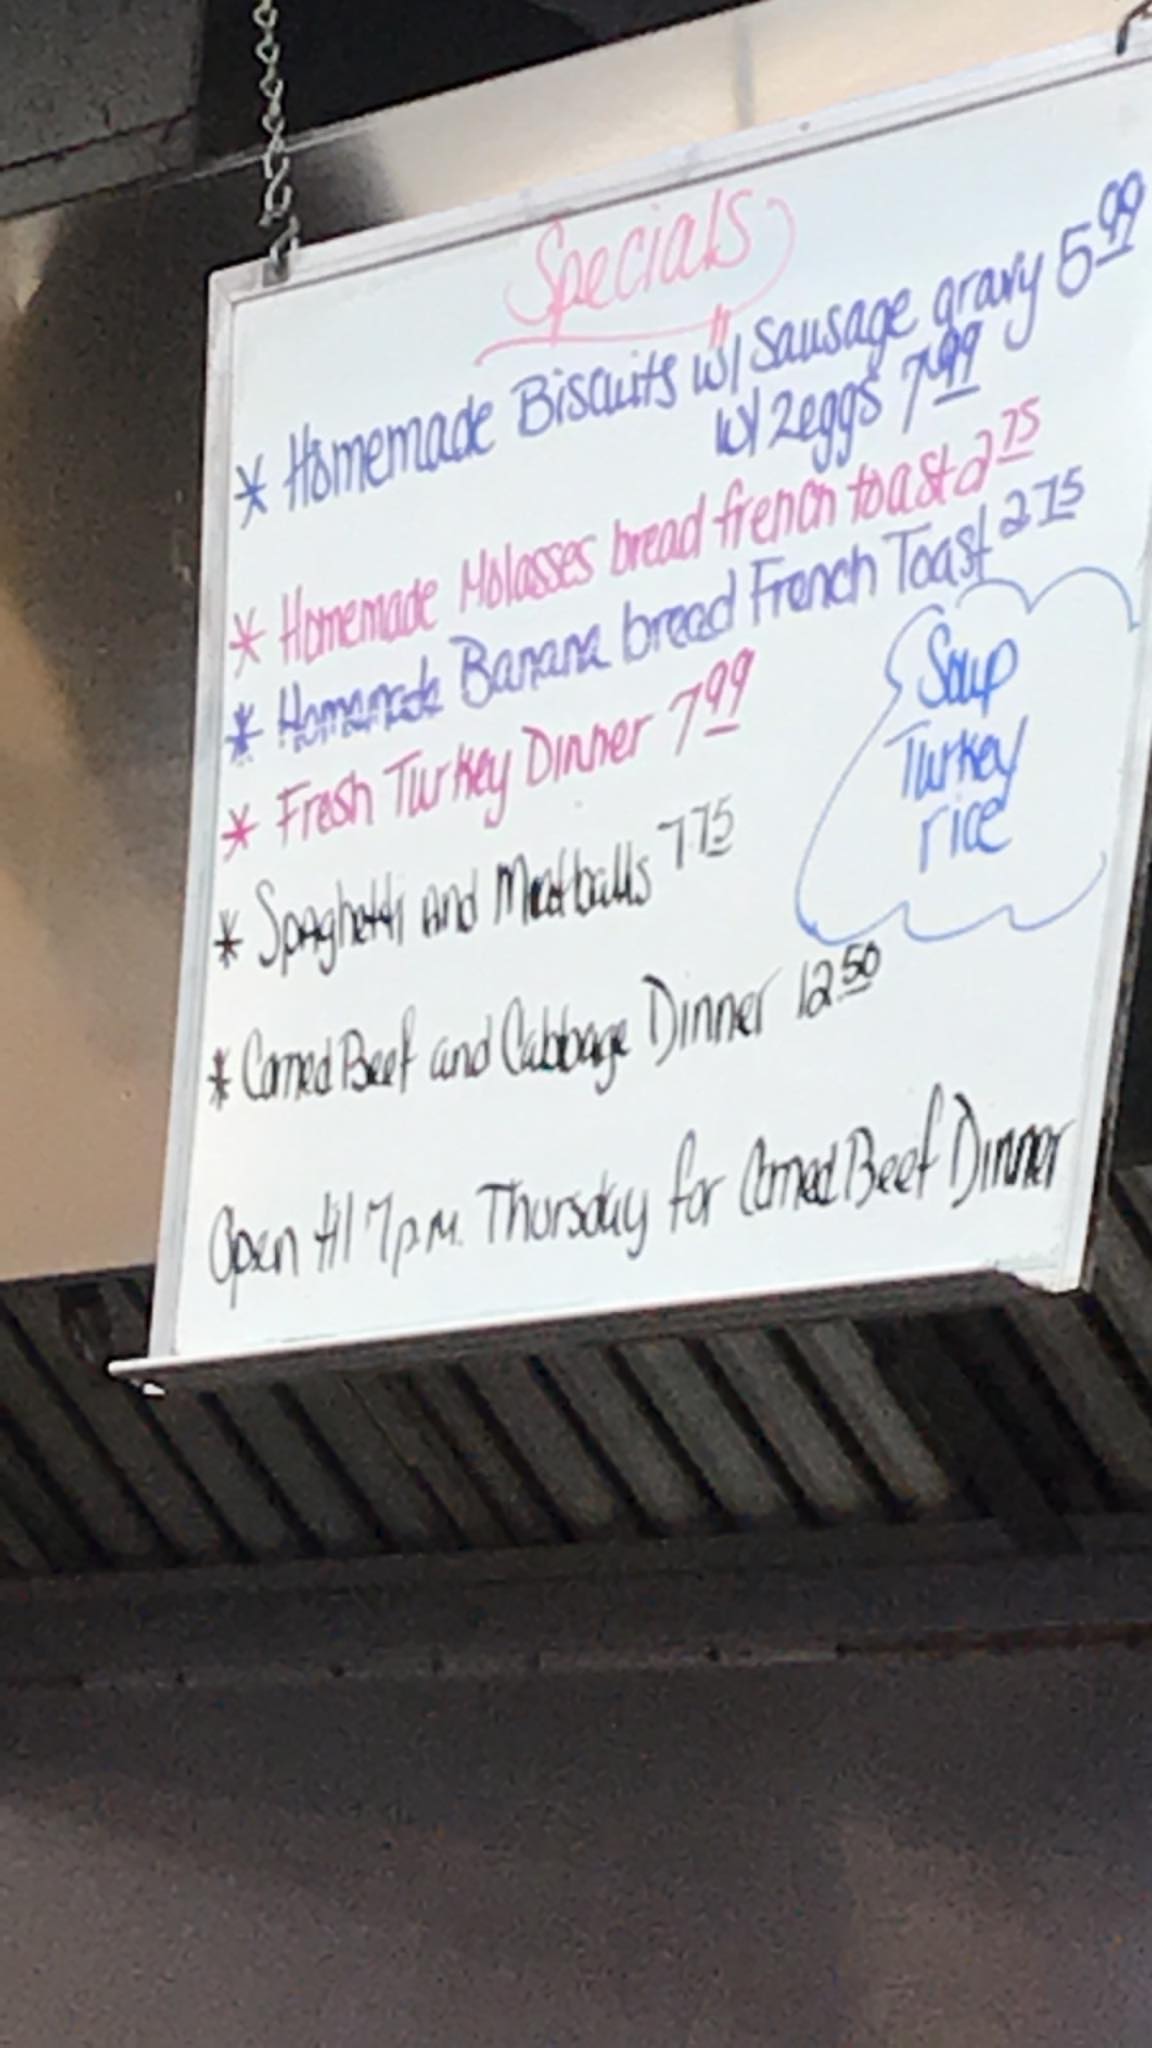 Specials
* Homemade Biscuits w/ Sausage gravy 5.99
w/ 2 eggs 7.99
* Homemade Molasses bread french toast 2.75
* Homemade Banana bread French Toast 2.75
* Fresh Turkey Dinner 7.99
* Spaghetti and Meatballs 7.75
* Corned Beef and Cabbage Dinner 12.50
Open til 7p.m. Thursday for Corned Beef Dinner
Soup
Turkey
rice